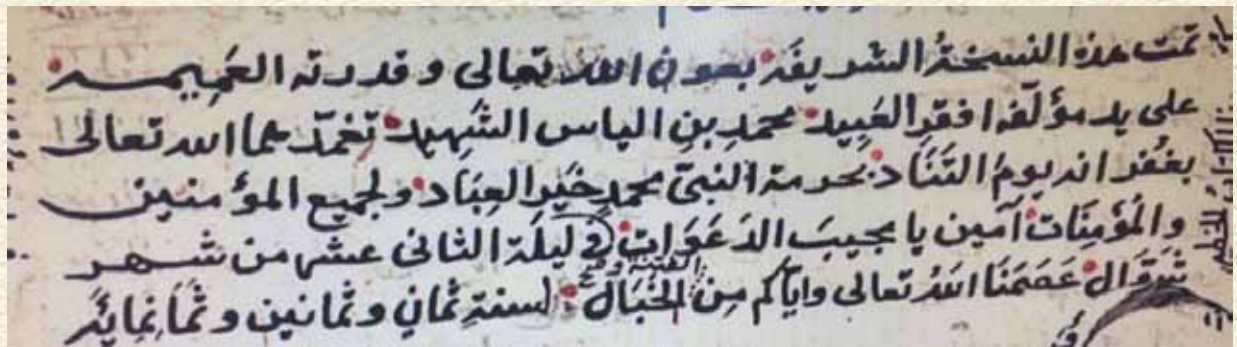 تمت هذه النسخةُ الشريفَة بعون الله تعالى وقدرته العَمِيمــة
على يد مؤلّفها افقرِ العَبِيد محمدِ بنِ الياس الشَّهِيد تغمّدهما الله تعالى
بغفرانه يومَ التَنَاد بحرمة النبيّ محمدٍ خَيرِ العِبَاد ولجميع المؤمنين
والمُؤمِنَات آمين يا مجيبَ الدَعَوَات في ليلَة الثانى عشر من شهر
شَوَّال عَصَمَنَا اللهُ تعالى واياكم مِنَ الخَبَال لسنةِ ثمانٍ وثمانين وثَمَانمِائَة